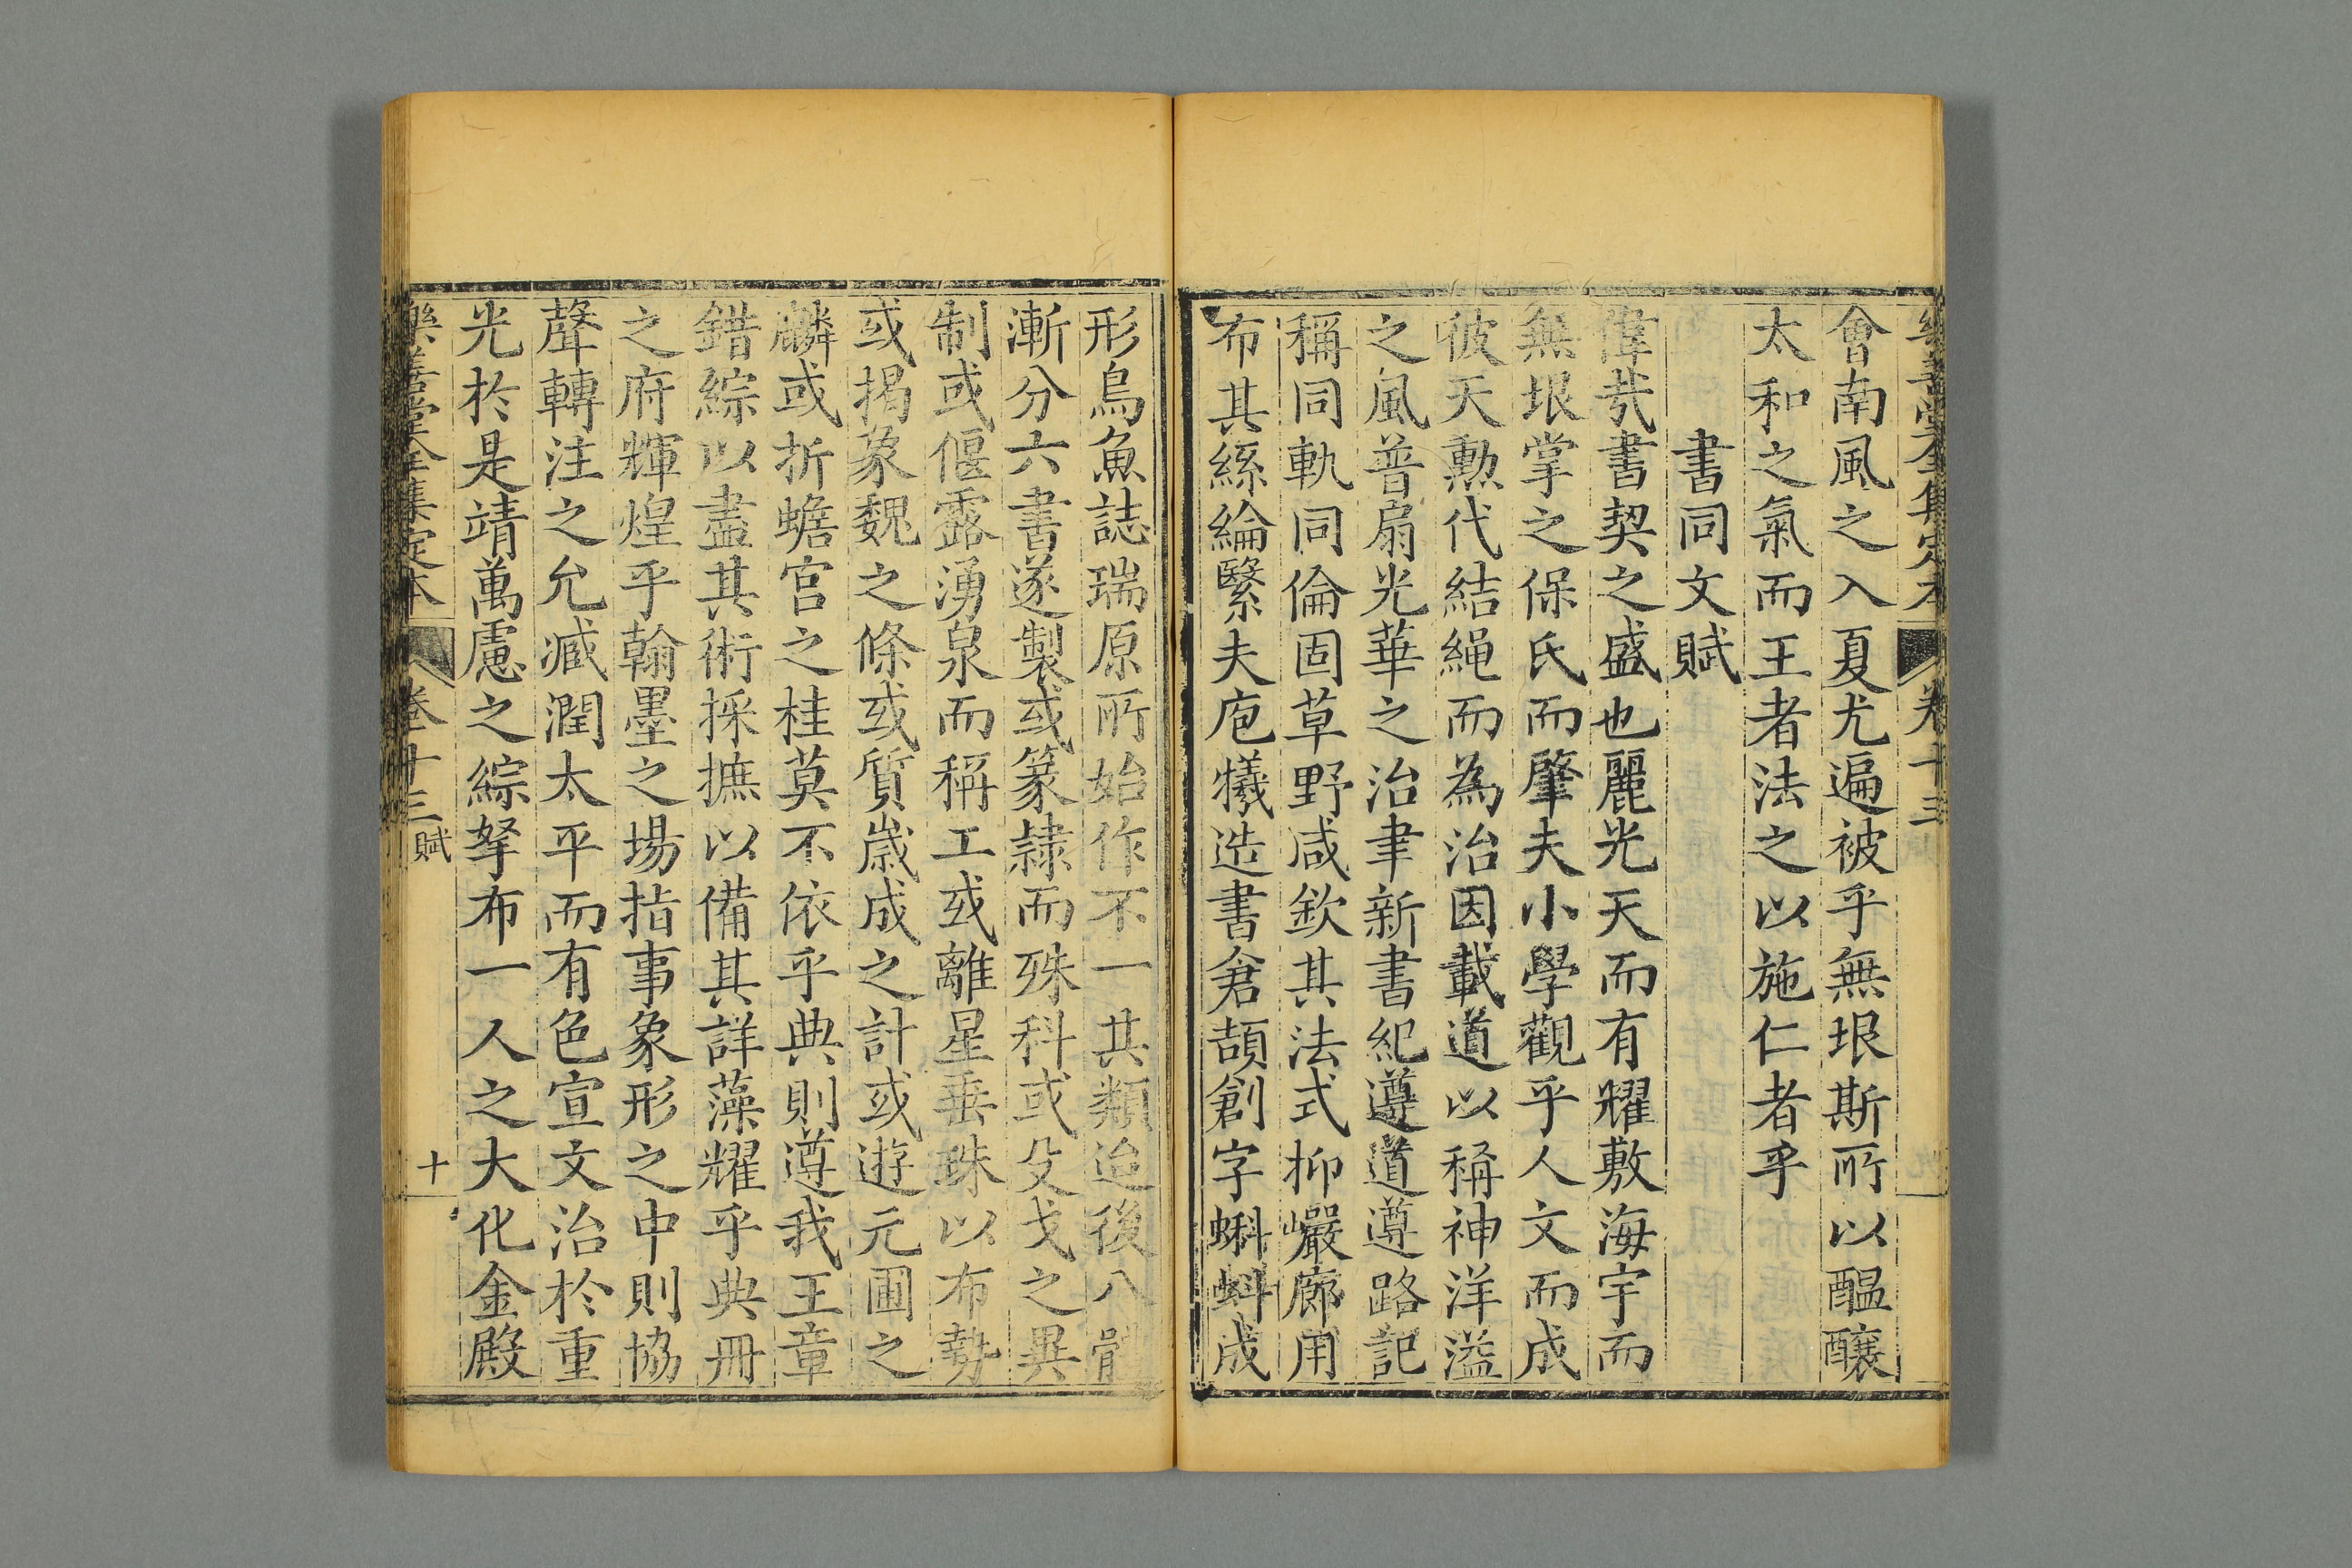 樂善堂全集定本 卷十三
會南風之入夏尤遍被乎無垠斯所以醞釀
太和之氣而王者法之以施仁者乎
書同文賦
偉哉書契之盛也麗光天而有耀敷海宇而
無垠掌之保氏而肇夫小學觀乎人文而成
彼天勲代結繩而為治因載道以稱神洋溢
之風普扇光華之治聿新書紀遵道遵路記
稱同軌同倫固草野咸欽其法式抑巖廊用
布其絲綸繄夫庖犧造書倉頡創字蝌蚪成
形烏魚誌瑞原所始作不一其類迨後八體
漸分六書遂製或篆隷而殊科或殳戈之異
制或偃露湧泉而稱工或離星垂珠以布勢
或揭象魏之條或質嵗成之計或遊元圃之
麟或折蟾宫之桂莫不依乎典則遵我王章
錯綜以盡其術採摭以備其詳藻耀乎典冊
之府輝煌乎翰墨之場指事象形之中則協
聲轉注之允臧潤太平而有色宣文治於重
光於是靖萬慮之綜拏布一人之大化金殿
樂善堂全集定本 卷十三 賦 十